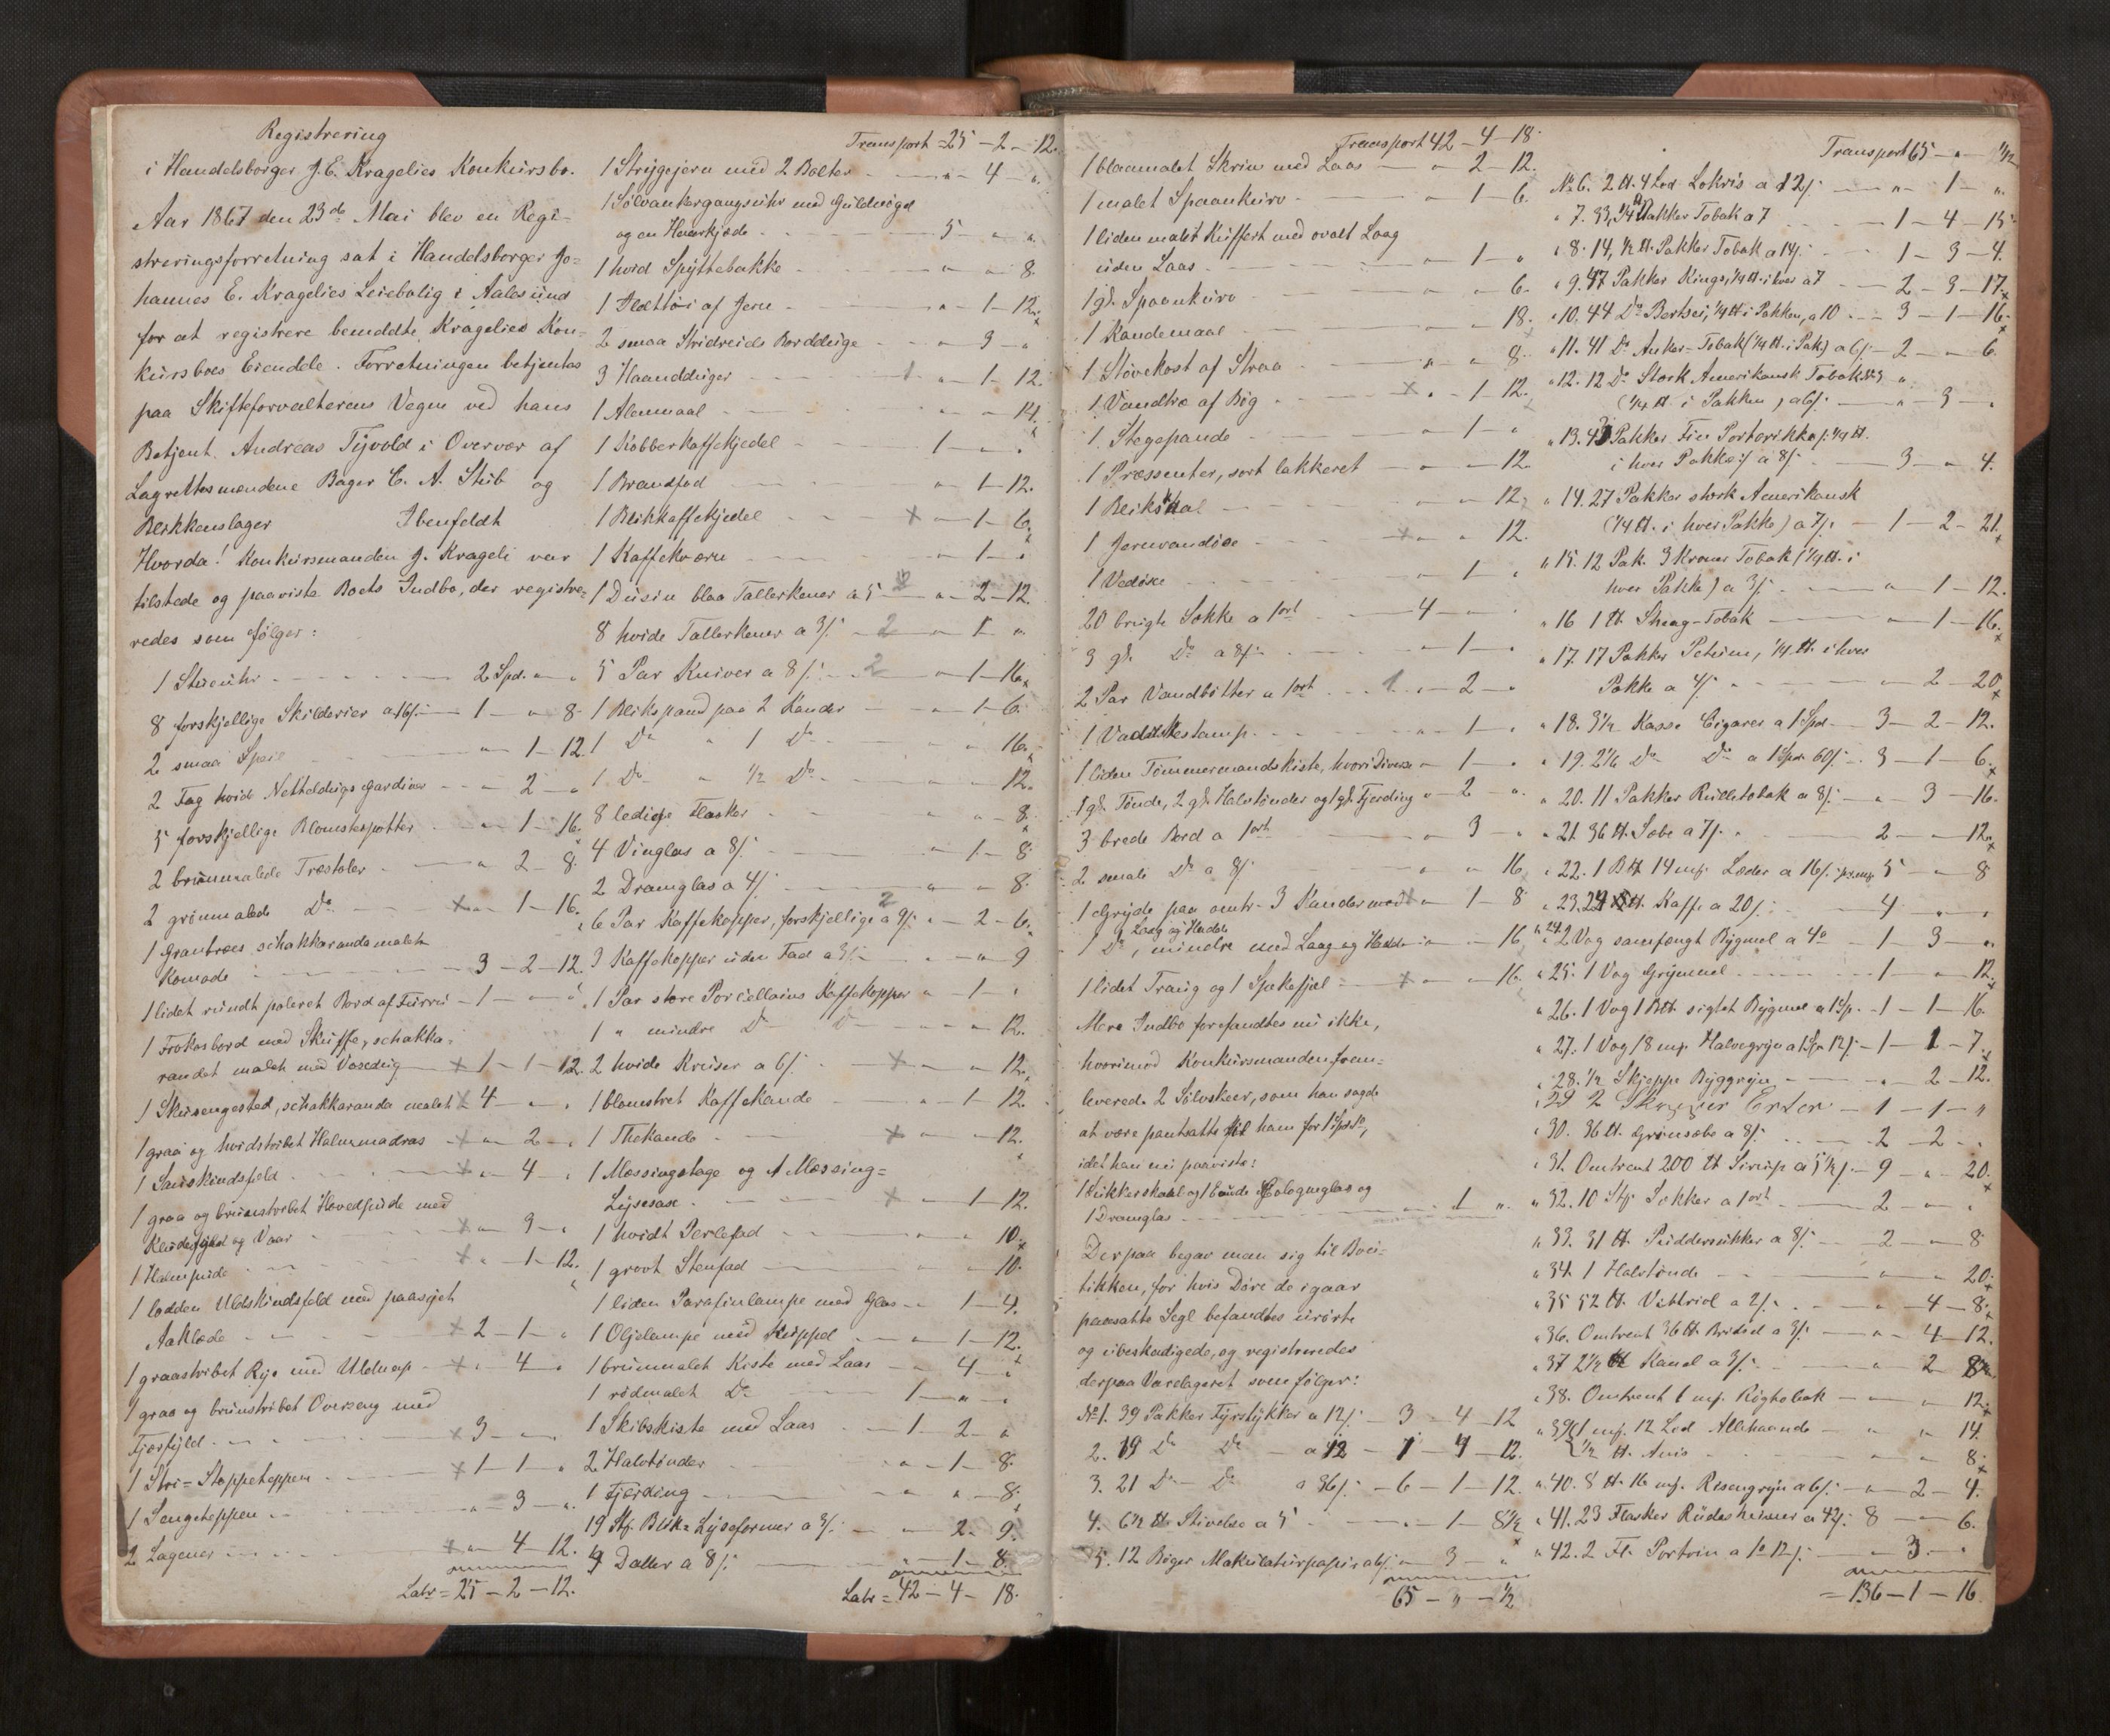 Registrering
i Handelsborger J. E. Kragelies Konkursbo.
Aar 1867 den 23de Mai blev en Regi-
streringsforretning sat i Handelsborger Jo=
hannes E. Kragelies Leiebolig i Aalesund
for at registrere bemeldte Kragelies Kon-
kursboes Eiendele. Forretningen betjentes
paa Skifteforvalterens Vegne ved hans
Betjent Andreas Tyvold i Overvær af
Lagrettesmændene Bager C. A. Stub og
Blikkenslager Ibenfeldt
Hvorda! Konkursmanden J. Krageli var
tilstede og paaviste Boets Indbo, der registre-
redes som følger:
1 Stueuhr 2 Spd. " "
8 forskjellige Skilderier a 16/ 1 - " 8
2 smaa Speil " - 1 - 12.
2 Fag hvide Netteldugs Gardiner " - 2 - "
5 forskjellige Blomsterpotter " - 1 - 16.
2 brunmalede Træstoler " - 2 - 8.
2 grønmalede Do x " - 1 - 16.
1 Grantræes schakkaranda malet
Komode 3 - 2 - 12.
1 lidet rundt poleret Bord af Furru 1 - " - "
1 Frokosbord med Skuffe, schakka-
randet malet med Voxdug x 1 - 1 - 12.
1 Skuesengested, schakkaranda malet x 4 - " - "
1 graa og hvidstribet Halmmadras x " - 2 - "
1 Saueskindsfeld x " - 4 - "
1 graa og brunstribet Hovedpude med
Kludefyld og Vaar x " - 3 - "
1 Halmpude x " - 1 - 12.
1 lodden Uldskindsfeld med paasyet
Aaklæde x 2 - 1 - "
1 graastribet Rye med Uldnap x " 4 - "
1 graa og brunstribet Overseng med
Fjærfyld x 3 - " - "
1 Stri= Stoppeteppen x 1 - 1 - "
1 Sengeteppen " - 3 - "
2 Lagener x " - 4 - 12.
Latr = 25 - 2 - 12.
Transport = 25 - 2 - 12.
1 Strygejern med 2 Bolter " - 4 - "
1 Sølvankergangsuhr med Guldnøgel
og en Haarkjæde 5 - " - "
1 hvid Spyttebakke " - " - 8.
1 Ildtøi af Jern " - 1 - 12.
2 smaa Borddúge " - 3 - "
3 Haanddúger " - 1 - 12.
1 Alenmaal " - " - 14.
1 Kobberkaffekjedel 1 - " - "
1 Brændfad " - 1 - 12.
1 Blikkaffekjedel x " - 1 - 6.
1 Kaffekværn " - 1 - "
1 Dusin blaa Tallerkener a 5 " - 2 - 12.
8 hvide Tallerkener a 3/ 2 " 1 "
5 Par Kniver a 8/ 2 " - 1 - 16.
1 Blikspand paa 2 Kander " - 1 - 6.
1 Do " 1 Do " - " 16.
1 Do " 1/2 Do " - " 12.
8 ledige Flasker " - " 8.
4 Vinglas a 8/ " - 1 - 8
2 Dramglas a 4/ " - " 8.
6 Par Kaffekopper, forskjellige a 9/ " - 2 - 6.
3 Kaffekopper uden Fad a 3/ " - " 9
1 Par store Porcellains Kaffekopper " - 1 - "
1 " mindre Do Do " - " - 12.
2 hvide Kruser a 6/ x " - " 12.
1 blomstret Kaffekande " - 1 - 12.
1 Thekande x " - " 12.
1 Messingstage og 1 Messing=
Lysesax x " - 1 - 12.
1 hvidt Perlefad " - " 10.
1 grovt Stenfad " - " 10.
1 liden Parafinlampe med Glas " - 1 - 4.
1 Oljelampe med Kuppel " - 1 - 12.
1 brunmalet Kiste med Laas " - 4 - "
1 rødmalet Do 1 - " - "
1 Skibskiste med Laas 1 - 2 - "
2 Halvtønder " - 1 - 8.
1 Fjerding " - " 8.
19 Stk. Blik= Lyseformer a 3/ " - 2 - 9.
4 Daller a 8/ " - 1 - 8.
Latr = 42 - 4 - 18.
Transport 42 - 4 - 18.
1 blaamalet Skrin med Laas " - 2 - 12.
1 malet Spaankurv " - 1 - 6.
1 liden malet Kuffert med ovalt Laag
uden Laas " - 1 - "
1 gl. Spaankurv " - " 6.
1 Kandemaal " - " 18.
1 Støvekost af Straa " - " 8.
1 Vandtræ af Bøg x " - 1 - 12.
1 Stegepande " - 1 - "
1 Præsenter, sort lakkeret " - " 12.
1 " - " 12.
1 Jernvandøse x " - " 12.
1 Vedøxe " - 1 - "
20 brugte Sække a 1 ort 4 - " - "
3 gl. Do a 8/ " - 1 - "
2 Par Vandbøtter a 1 ort 1 " - 2 - "
1 Vadskestamp " - 1 - "
1 liden Tømmermandskiste, hvori Diverse " - 1 - "
1 gl. Tønde, 2 gl. Halvtønder og 1 gl. Fjerding " - 2 - "
3 brede Bord a 1 ort " - 3 - "
2 smale Do a 8/ " - " 16
1 Gryde paa omtr. 3 Kander med " - 1 - 8
Laag og Hadde
1 Do, mindre med Laag og Hadde " - " 16
1 lidet Traug og 1 Spekefjæl x " - " 16.
Mere Indbo forefandtes nu ikke,
hvorimod Konkursmanden frem-
leverede 2 Sølvskeer, som han sagde
at være pantsatte til ham for 1 Spd.,
idet han nu paaviste:
1 Sukkerskaal og 1 Eaude Cologneglas og
1 Dramglas " - 1 "
Derpaa begav man sig til Bou-
tikken, for hvis Døre de igaar
paasatte Segl befandtes urørte
og ubeskadigede, og registreredes
derpaa Varelageret som følger:
No 1. 39 Pakker Fyrstykker a 12/ 3 - 4 - 12
2. 19 Do Do a 12 - 1 - 4 - 12.
3. 21 Do Do a 36/ - 6 - 1 - 12.
4. 6 1/2 ℔ Stivelse a 5 " - 1 - 8 1/2
5. 12 Bøger Makulaturpapir a 6/ " 3 - "
65 - " - 1/2
Transport 65 - " - 1/2
No 6. 2 ℔. 4 Lod Lakris a 12/ " - 1 - "
" 7. 33, 1/4 ℔ Pakker Tobak a 7 1 - 4 - 15
" 8. 14, 1/2 ℔. Pakker Tobak a 14/ 1 - 3 - 4.
" 9. 47 Pakker Rings, 1/4 ℔. i hver a 7 2 - 3 - 17.
" 10. 44 Do 1/4 ℔ i Pakken, a 10 3 - 1 - 16.
" 11. 41 Do Anker= Tobak (1/4 ℔. i Pak) a 6/ 2 - " 6.
" 12. 12 Do Stærk Amerikansk Tobak
(1/4 ℔ i Pakken) a 6/ " 3 - "
" 13. 43 Pakker Fin Portorikko /: 1/4 ℔.
i hver Pakke :/ a 8/ 3 - " 4.
" 14. 27 Pakker stærk Amerikansk
(1/4 ℔. i hver Pakke) a 7/ 1 - 2 - 21.
" 15. 12 Pak. 3 Kroner Tobak (1/4 ℔. i
hver Pakke) a 3/ " - 1 - 12.
" 16 1 ℔. Shaag-Tobak " - 1 - 16.
" 17. 17 Pakker Petum, 1/4 ℔. i hver
Pakke a 4/ " - 2 - 20
" 18. 3 1/2 Kasse Cigarer a 1 Spd 3 - 2 - 12.
" 19. 2 1/6 Do Do a 1 Spd 60/ 3 - 1 - 6.
" 20. 11 Pakker Rulletobak a 8/ " 3 - 16.
" 21. 36 ℔. Sæbe a 7/ 2 - " 12.
" 22. 1 B℔ 14 mk. Læder a 16/ pr. mk 5 - " 8
" 23. 24 ℔. Kaffe a 20/ 4 " "
" 24. 2 Vog samfængt Bygmel a 4 o 1 - 3 - "
" 25. 1 Vog Grynmel 1 - " 12.
" 26. 1 Vog 1 B℔. sigtet Bygmel a 1 Sp. 1 - 1 - 16.
" 27. 1 Vog 18 mk. Halvegryn a 1 Sp 12/ 1 - 1 - 7.
" 28. 1/2 Skjeppe Byggryn " - 2 - 12.
" 29 2 Skjepper Erter 1 - 1 - "
" 30. 36 ℔. Grønsæbe a 8/ 2 - 2 -
" 31. Omtrent 200 ℔ Sirup a 5 1/2/ 9 - " 20.
" 32. 10 Stk. Sekker a 1 ort 2 - " "
" 33. 31 ℔. Puddersukker a 8/ 2 - " 8
" 34. 1 Halvtønde " - " 20.
" 35 52 ℔. Vittriol a 2/ " - 4 - 8.
" 36. Omtrent 36 ℔. Bridsel a 3/ " - 4 - 12.
" 37 2 1/2 ℔ Kanel a 3/ " 2 8
" 38. Omtrent 1 mk. Røgtobak " " 12.
" 39 1 mk. 12 Lod Allehaande " " 14.
1/2 ℔. Anis " " 8.
" 40. 8 ℔. 16 mk. Risengryn a 6/ " - 2 - 4.
" 41. 23 Flasker Rüdesheimer a 42/ 8 - " 6.
" 42. 2 Fl. Portvin a 1 o 12/ " 3 - "
= 136 - 1 - 16.